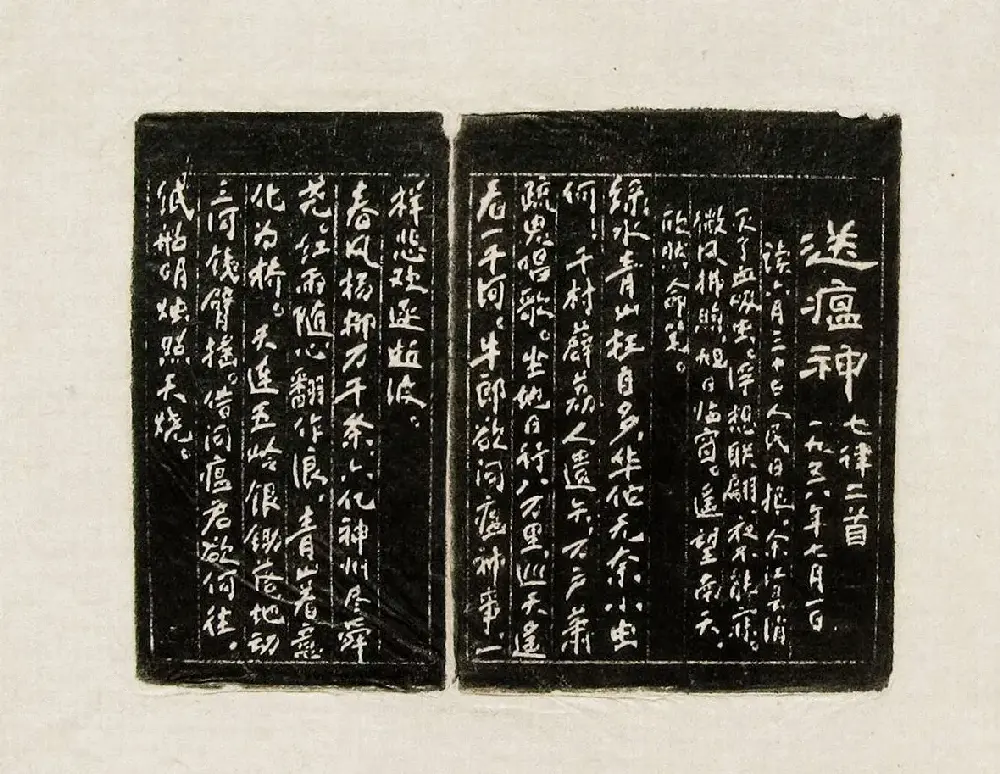 送瘟神 七律二首
一九五八年七月一日
读六月三十日人民日报,余江县消
灭了血吸虫。浮想联翩,夜不能寐。
微风拂煦,旭日临窗。遥望南天,
欣然命笔。
绿水青山枉自多,华佗无奈小虫
何!千村薜荔人遗矢,万户萧
疏鬼唱歌。坐地日行八万里,巡天遥
看一千河。牛郎欲问瘟神事,一
样悲欢逐逝波。
春风杨柳万千条,六亿神州尽舜
尧。红雨随心翻作浪,青山着意
化为桥。天连五岭银锄落地动
三河铁臂摇。借问瘟君欲何往。
纸船明烛照天烧。